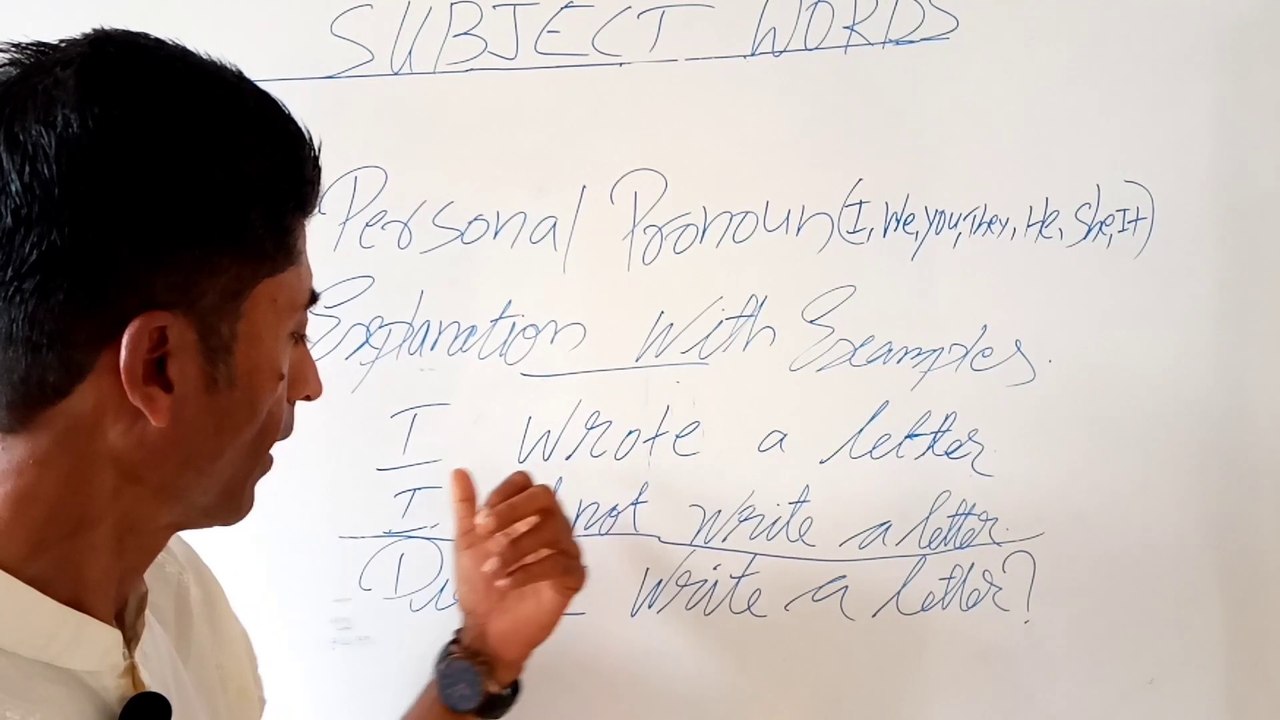 SUBJECT WORDS
Personal Pronoun (I, We, you, They, He, She, It)
Explanation With Examples.
I Wrote a letter
I not write a letter.
write a letter?